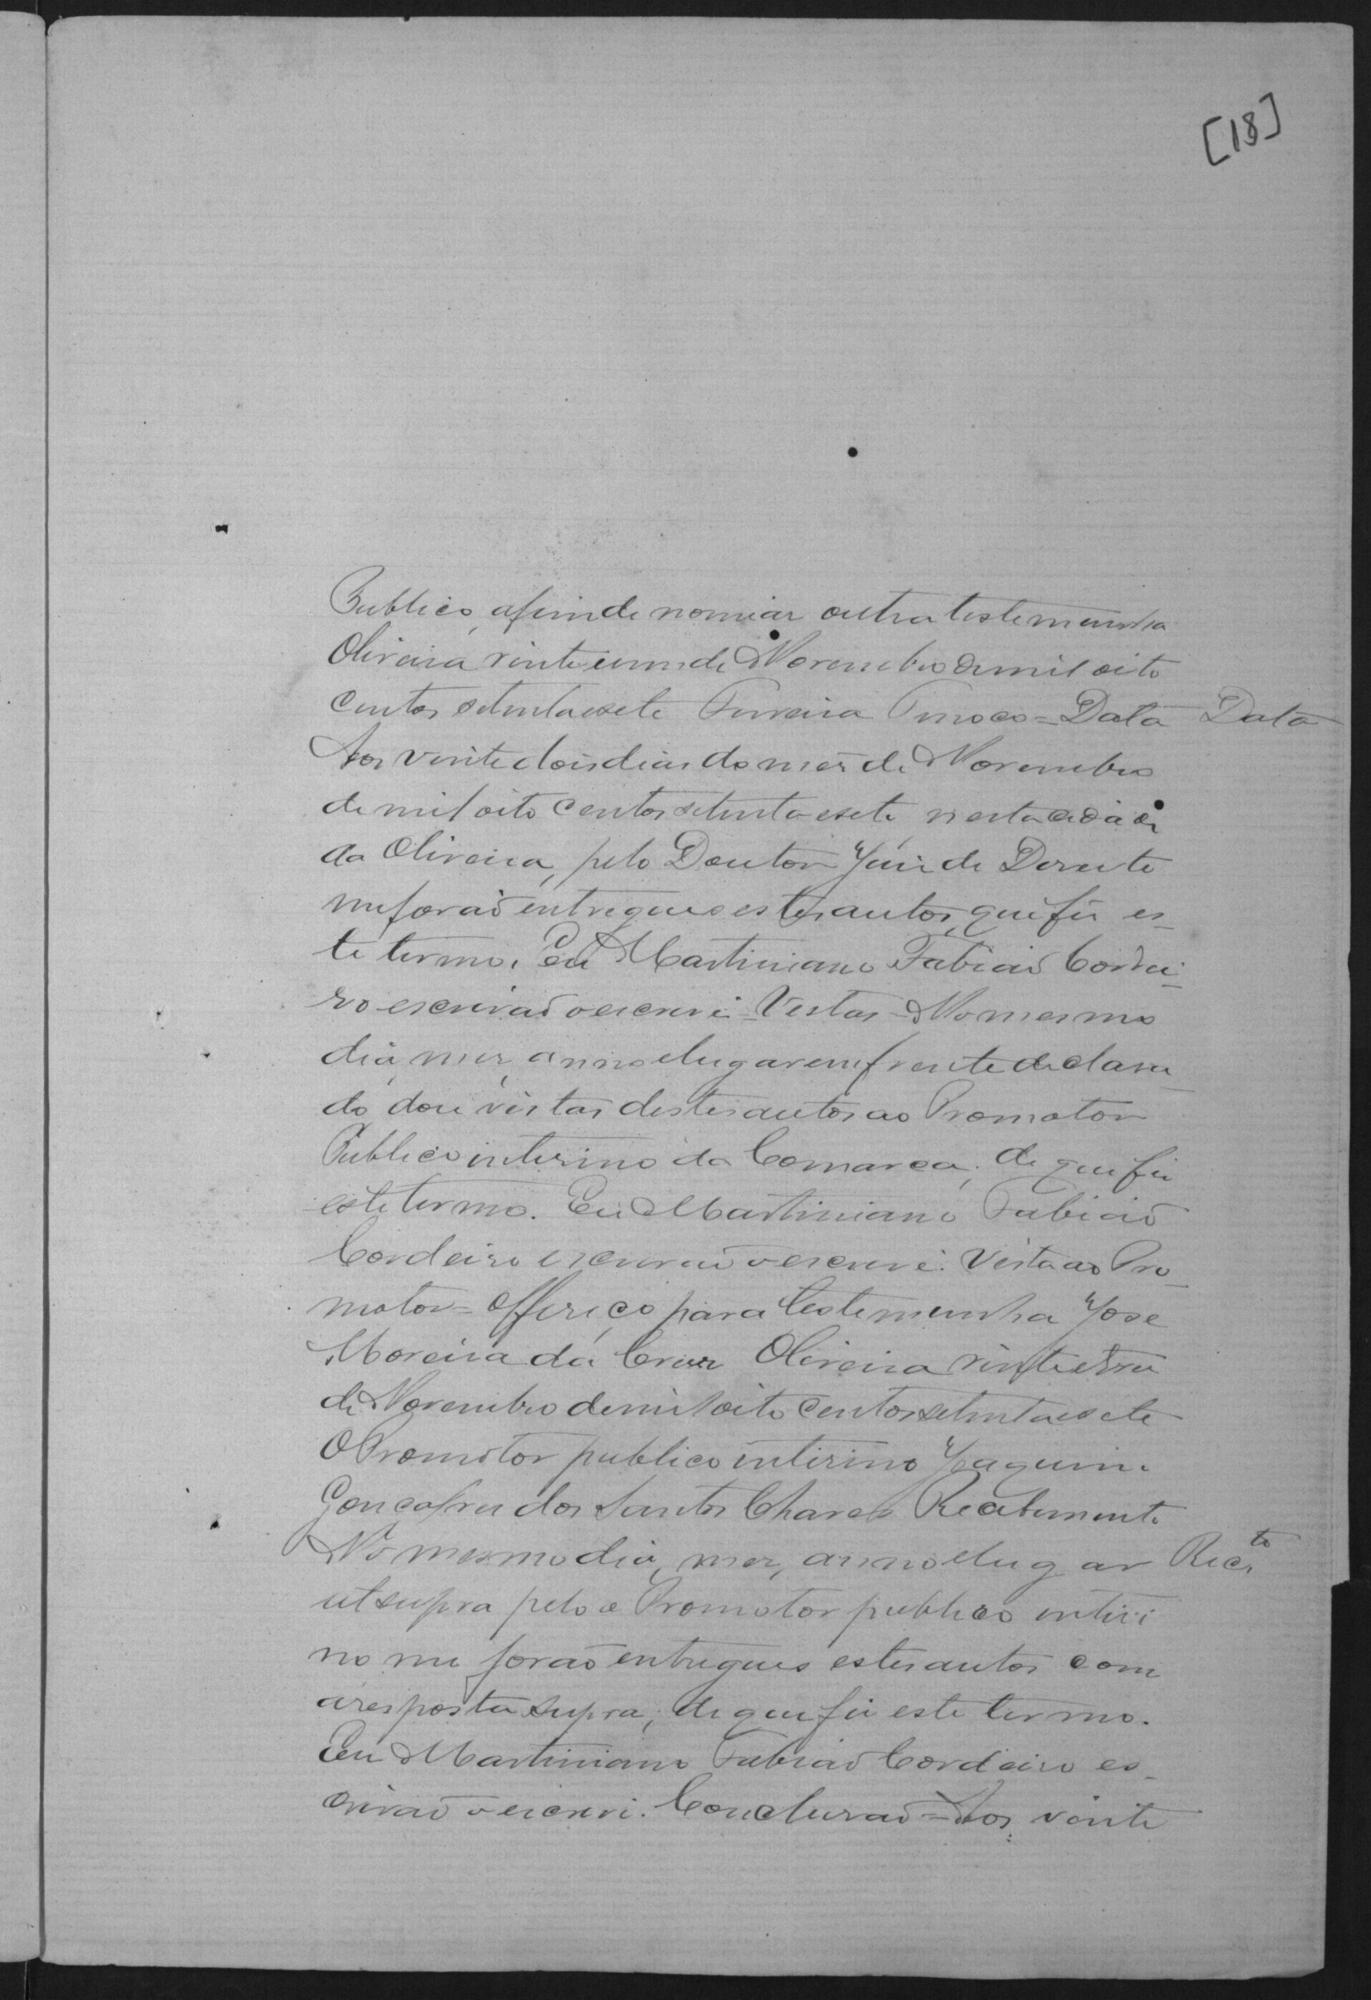 [18]
Publico, afim de nomiar outra testemunha
Oliveira vinte e um de Novembro de mil oito
centos setenta e sete Ferreira Tinoco = Data Data
Aos vinte dois dias do mes de Novembro
de mil oito centos setenta e sete nesta cidade
da Oliveira, pelo Doutor Juis de Dereito
me forão entregues estes autos, que fis es-
te termo. Eu Martiniano Fabião Cordei-
ro escrivão o escrevi = Vistas = No mesmo
dia, mes, anno e lugar em frente declara-
do dou vistas destes autos ao Promotor
Publico interino da Comarca, de que fis
este termo. Eu Martiniano Fabião
Cordeiro escrivão o escrevi. Vista ao Pro-
motor = Offereço para testemunha José
Moreira da Crus Oliveira vinte e tres
de Novembro de mil oito centos setenta e sete
O Promotor publico interino Joaquim
Gonçalves dos Santos Chaves Recebimento
No mesmo dia, mes, anno e lugar Rec.to
ut supra pelo o Promotor publico interi
no me forão entregues estes autos com
a resposta supra, de que fis este termo.
Eu Martiniano Fabião Cordeiro es-
crivão o escrevi. Conclusão = Aos vinte